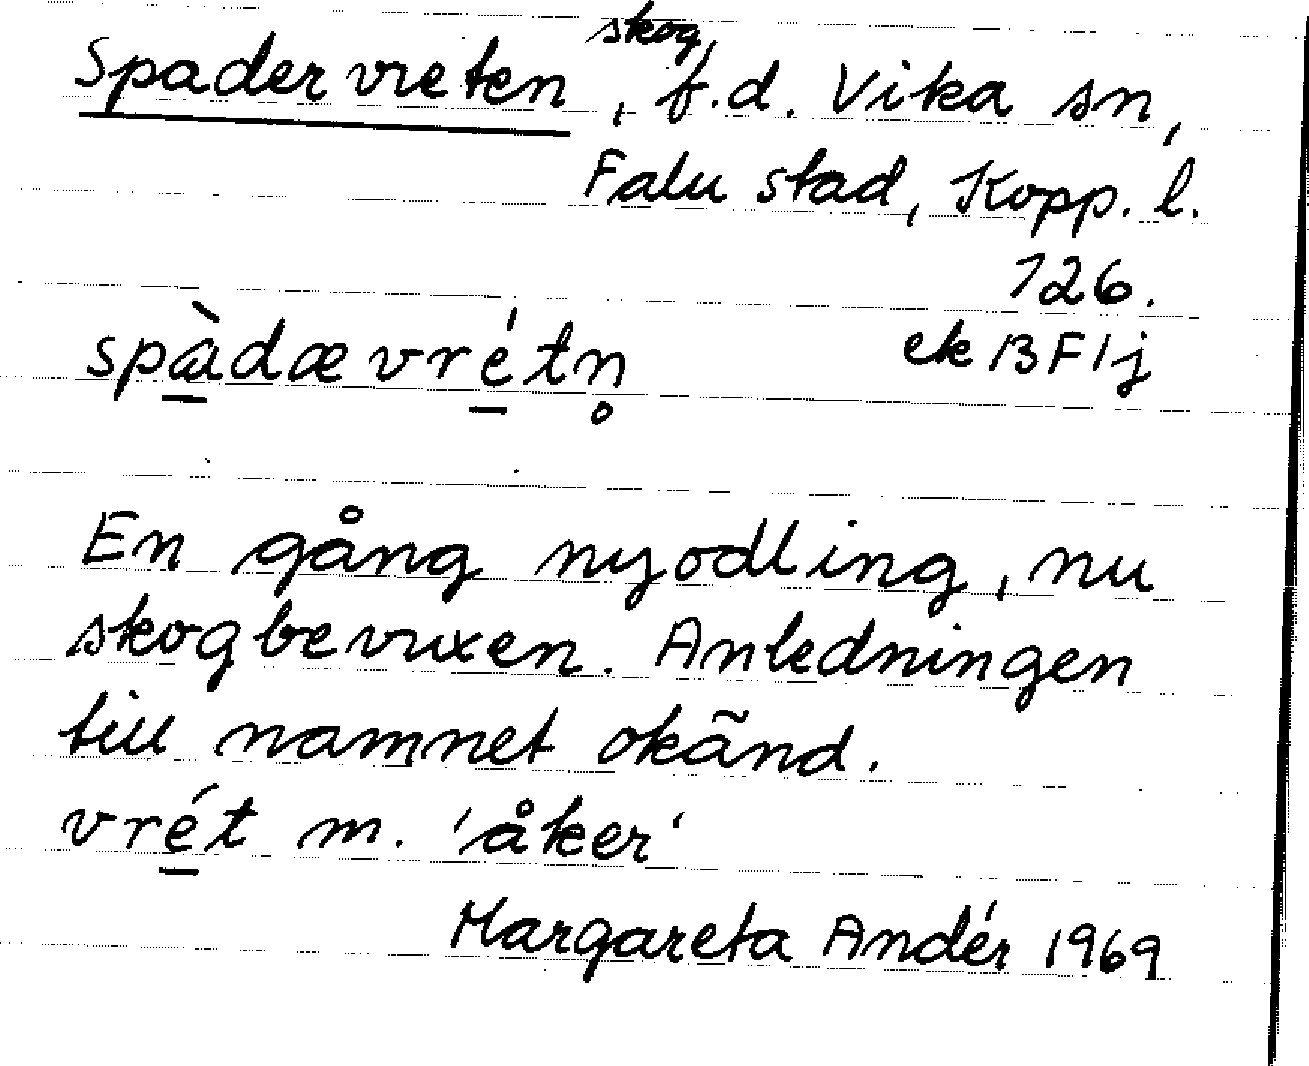 Spadervreten, skog, f.d. Vika sn,
Falu stad, Kopp. l.
126.
spà̱dævré̱tn̥ ek 13F1j
En gång nyodling, nu
skogbevuxen. Anledningen
till namnet okänd.
vré̱t m. 'åker'
Margareta Andér 1969